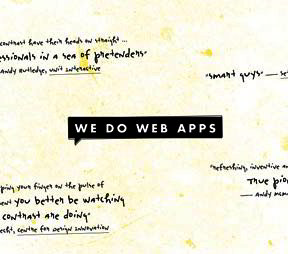 contrast have their heads on straight ...
essionals in a sea of pretenders"
andy Rutledge, Unit Interactive
"smart guys" —
WE DO WEB APPS
"refreshing, inventive an
True pio
— Andy
ping your finger on the pulse of
ment you better be watching
contrast are doing"
echt, Centre for Design Innovation